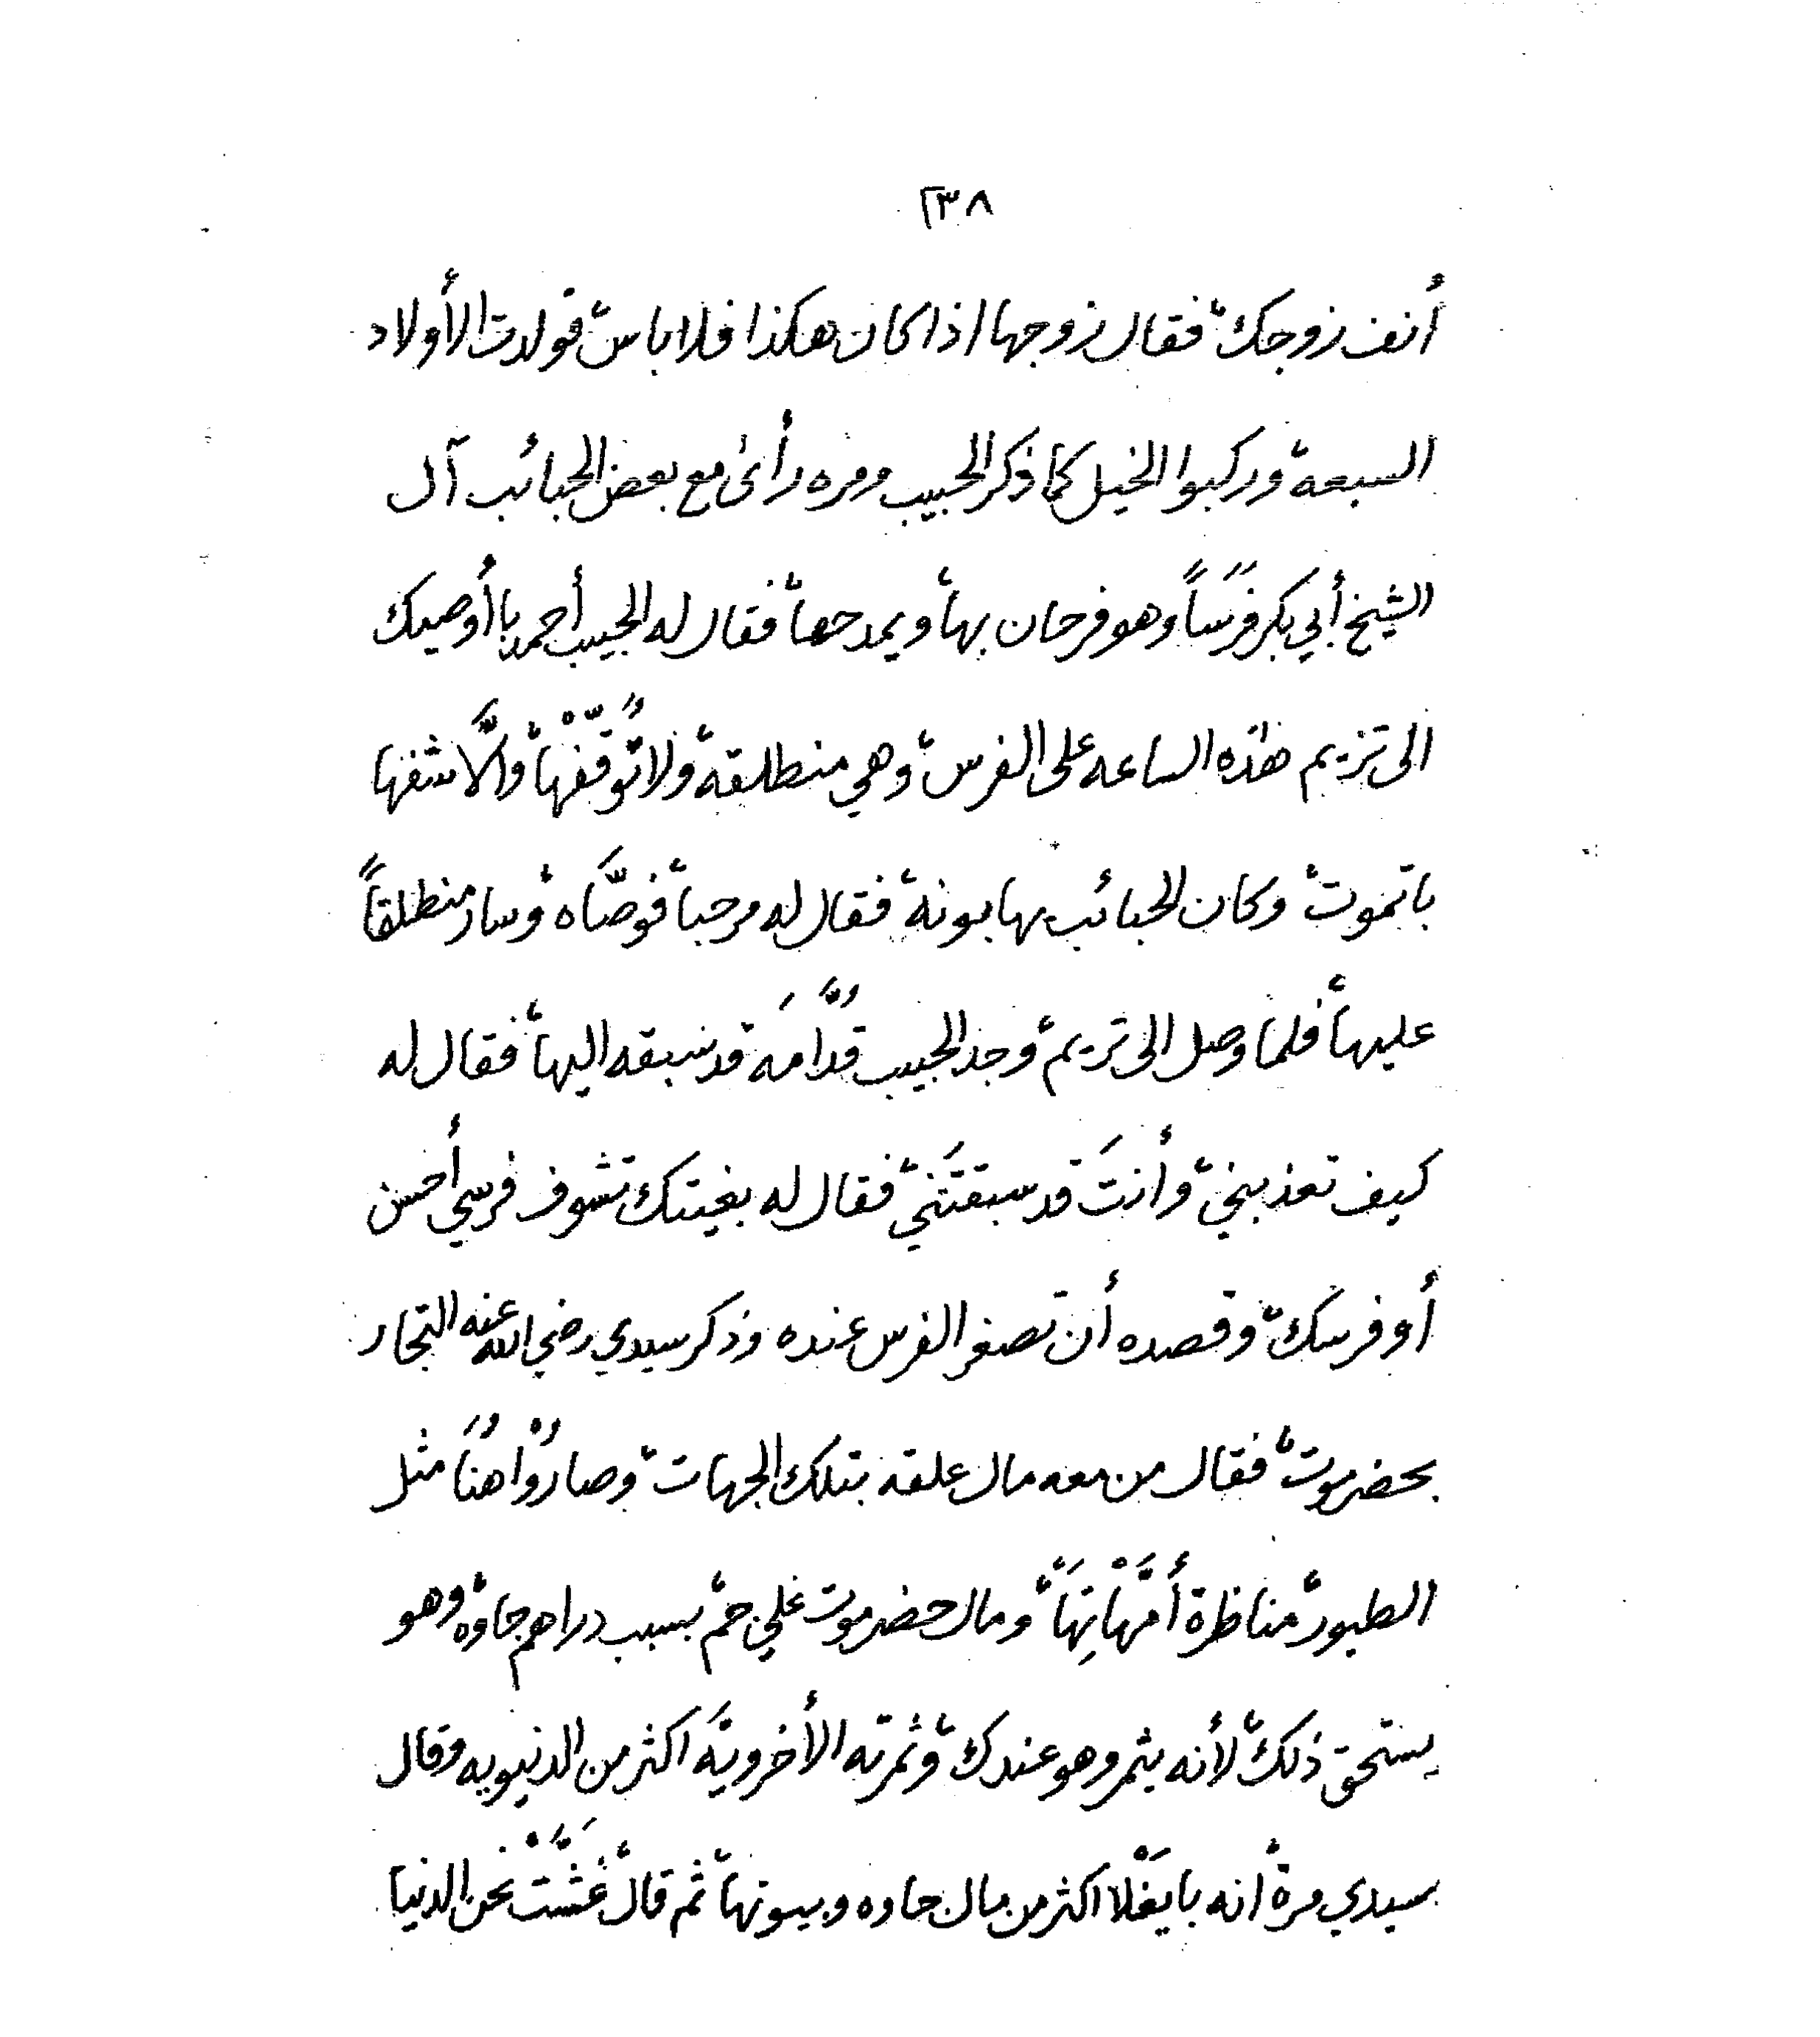 ٢٣٨
أنف زوجك، فقال زوجها اذا كان هكذا فلا باس، فولدت الأولاد
السبعة، وركبوا الخيل كما ذكر الحبيب ومره رأى مع بعض الحبائب آل
الشيخ أبي بكر فَرَساً وهو فرحان بها، ويمدحها، فقال له الحبيب أحمد با أُوصيك
الى تريم هذه الساعه على الفرس، وهي منطلقة، ولا تُوَقّفْها، والَّا شفها
با تموت، وكان الحبائب يهابونه، فقال له مرحبا، فوصَّاه، وسار منطلقاً
عليها، فلما وصل الى تريم، وجد الحبيب قُدَّامَه قد سبقه اليها، فقال له
كيف تعذبني، وأنتَ قد سبقتَني، فقال له بغيتك تشوف فرسي أحسن
أو فرسك، وقصده أن تصغر الفرس عنده وذكر سيدي رضي الله عنه التجار
بحضرموت، فقال من معه مال علقه بتلك الجهات، وصارُوْا هُنَا مثل
الطيور، مناظرة أُمَّهَاتِهَا، ومال حضرموت غلي حم، بسبب دراهم جاوه، وهو
يستحق ذلك، لأنه يثمر وهو عندك، وثمرته الأخرويَّه اكثر من الدنيويه وقال
سيدي مرة، انه با يَغْلا اكثر من مال جاوه وبيوتها، ثم قال، غَشَّتْ نحن الدنيا